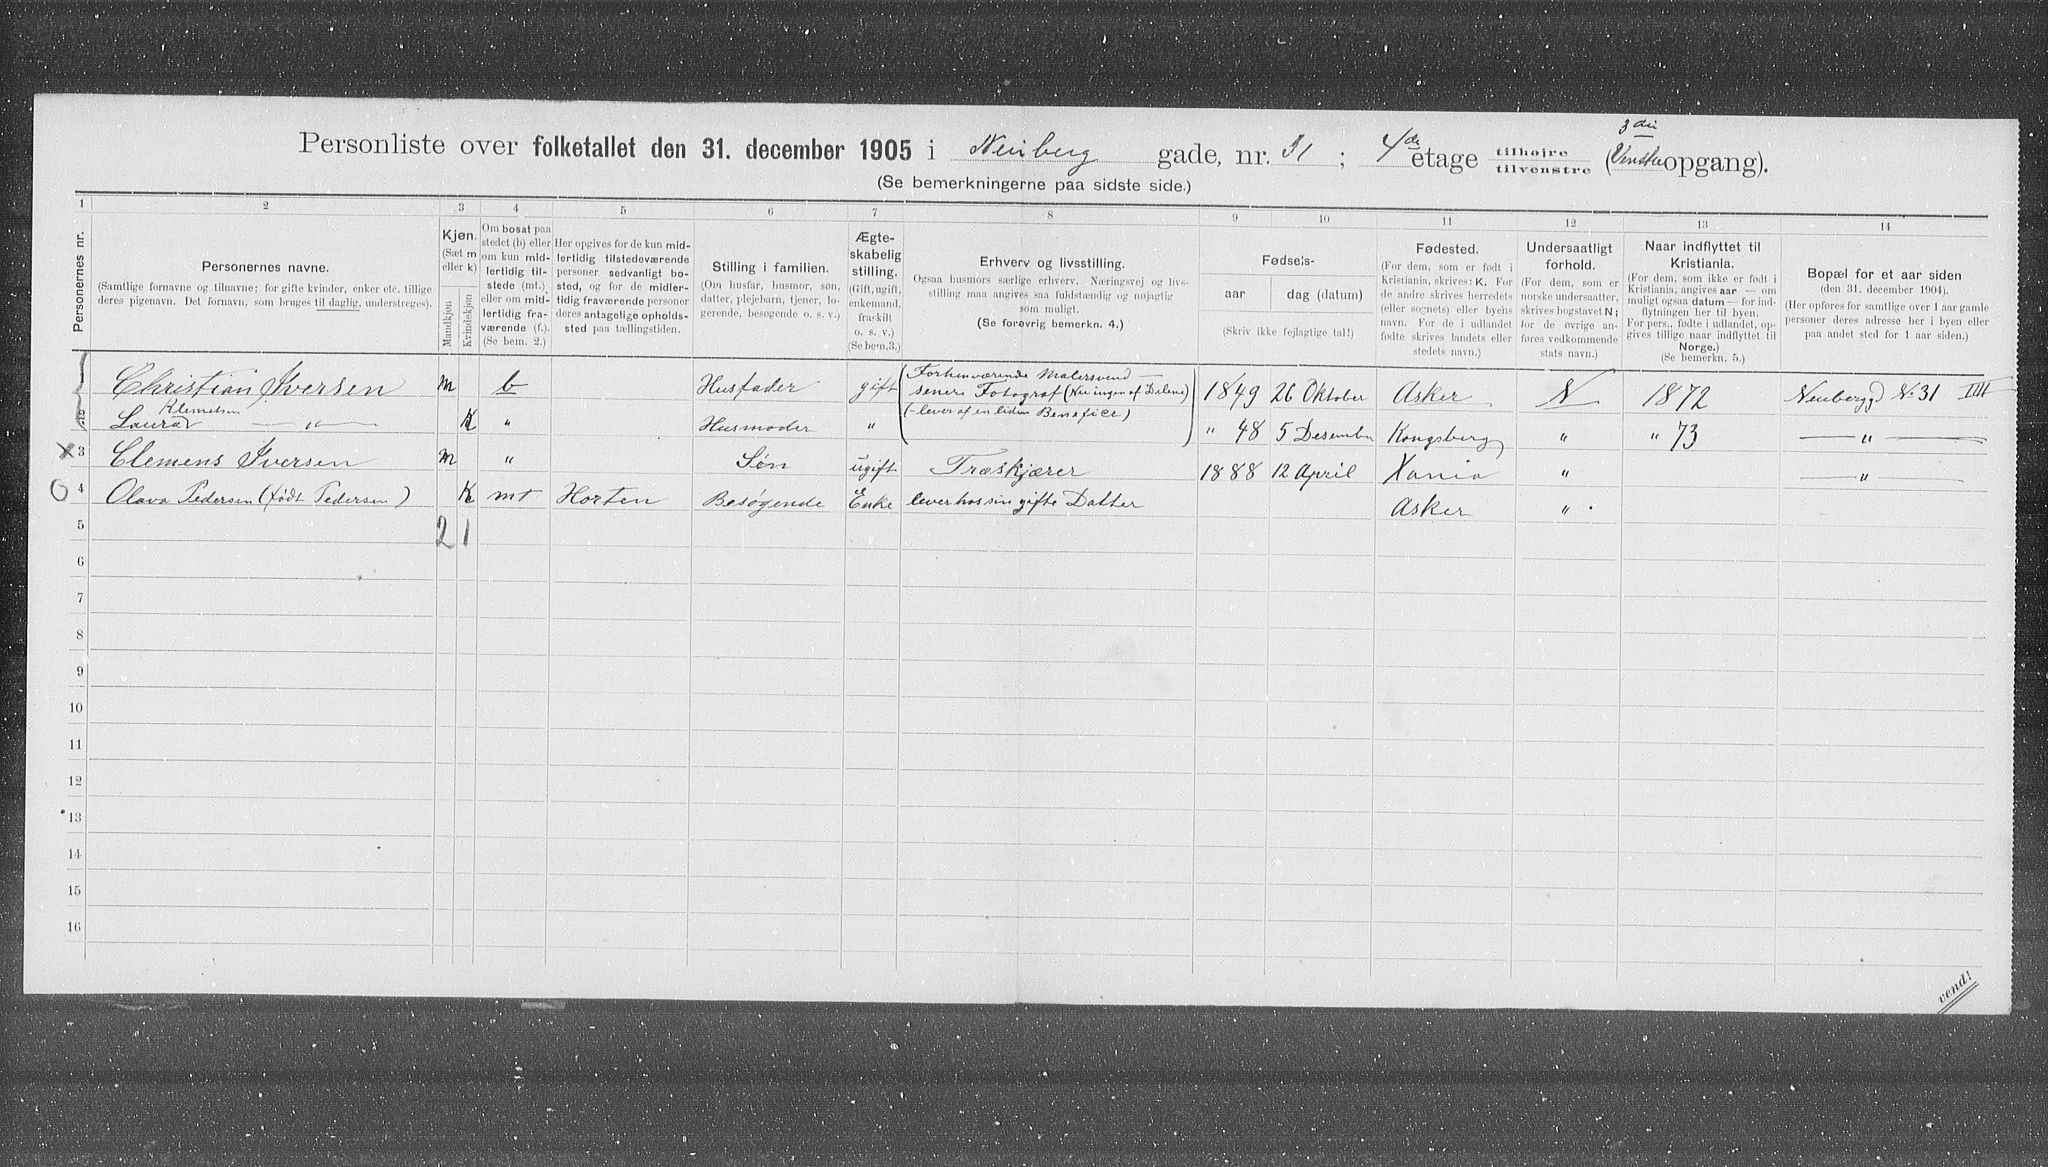 Personliste over folketallet den 31. december 1905 i Neuberg gade, nr. 31 ; 4de etage tilhøjre tilvenstre (Venstre 3die opgang).
(Se bemerkningerne paa sidste side.)
1 2 3 4 5 6 7 8 9 10 11 12 13 14
Personernes nr.
Personernes navne.
(Samtlige fornavne og tilnavne; for gifte kvinder, enker etc. tillige
deres pigenavn. Det fornavn, som bruges til daglig, understreges).
Kjøn.
(Sæt m
eller k)
Mandkjøn
Kvindekjøn
Om bosat paa
stedet (b) eller
om kun mid-
lertidig til-
stede (mt.)
eller om mid-
lertidig fra-
værende (f.).
(Se bem. 2.)
Her opgives for de kun mid-
lertidig tilstedeværende
personer sedvanlig bo-
sted, og for de midler-
tidig fraværende personer
deres antagelige opholds-
sted paa tællingstiden.
Stilling i familien.
(Om husfar, husmor, søn,
datter, plejebarn, tjener, lo-
gerende, besøgende o. s. v.)
Ægte-
skabelig
stilling.
(Gift, ugift,
enkemand,
fraskilt
o. s. v.)
(Se bem.3.)
Erhverv og livsstilling.
Ogsaa husmors særlige erhverv. Næringsvej og livs-
stilling maa angives saa fuldstændig og nøjagtig
som muligt.
(Se forøvrig bemerkn. 4.)
Fødsels-
aar dag (datum)
(Skriv ikke fejlagtige tal!)
Fødested.
(For dem, som er født i
Kristiania, skrives: K. For
de andre skrives herredets
(eller sognets) eller byens
navn. For de i udlandet
fødte skrives landets eller
stedets navn.)
Undersaatligt
forhold.
(For dem, som er
norske undersaatter,
skrives bogstavet N;
for de øvrige an-
føres vedkommende
stats navn.)
Naar indflyttet til
Kristiania.
(For dem, som ikke er født i
Kristiania, angives aar — om
muligt ogsaa datum — for ind-
flytningen her til byen.
For pers., født i udlandet, op-
gives tillige naar indflyttet til
Norge.)
(Se bemerkn. 5.)
Bopæl for et aar siden
(den 31. december 1904).
(Her opføres for samtlige over 1 aar gamle
personer deres adresse her i byen eller
paa andet sted for 1 aar siden.)
Christian Iversen m b Husfader gift (Forhenværende Malersvend — senere Fotograf (Nu ingen af Delene) (- lever af en liden Benefice) 1849 26 Oktober Asker N 1872 Neuberggd No 31 IIII
Laura Klemetsen — " — K " Husmoder " " 48 5 Desember Kongsberg " " 73 — " —
x 3 Clemens Iversen m " Søn ugift Træskjærer 1888 12 April Xania " — " —
O 4 Olava Pedersen (født Pedersen) K mt Horten Besøgende Enke lever hos sin gifte Datter Asker "
5 2 1
6
7
8
9
10
11
12
13
14
15
16
vend!